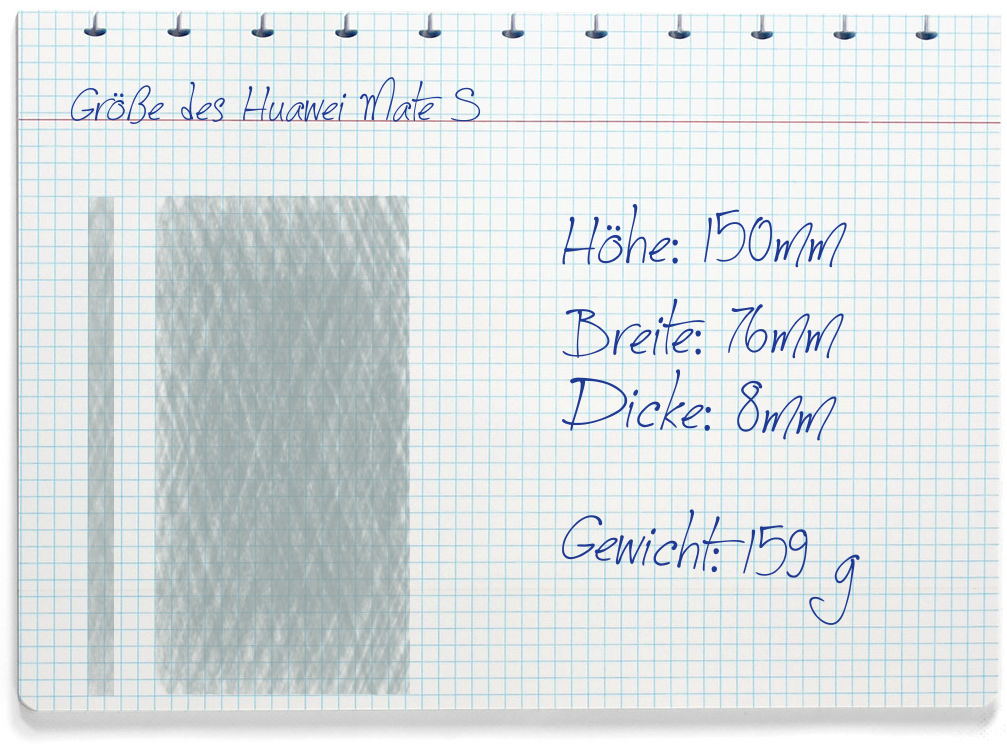 Größe des Huawei Mate S
Höhe: 150mm
Breite: 76mm
Dicke: 8mm
Gewicht: 159 g